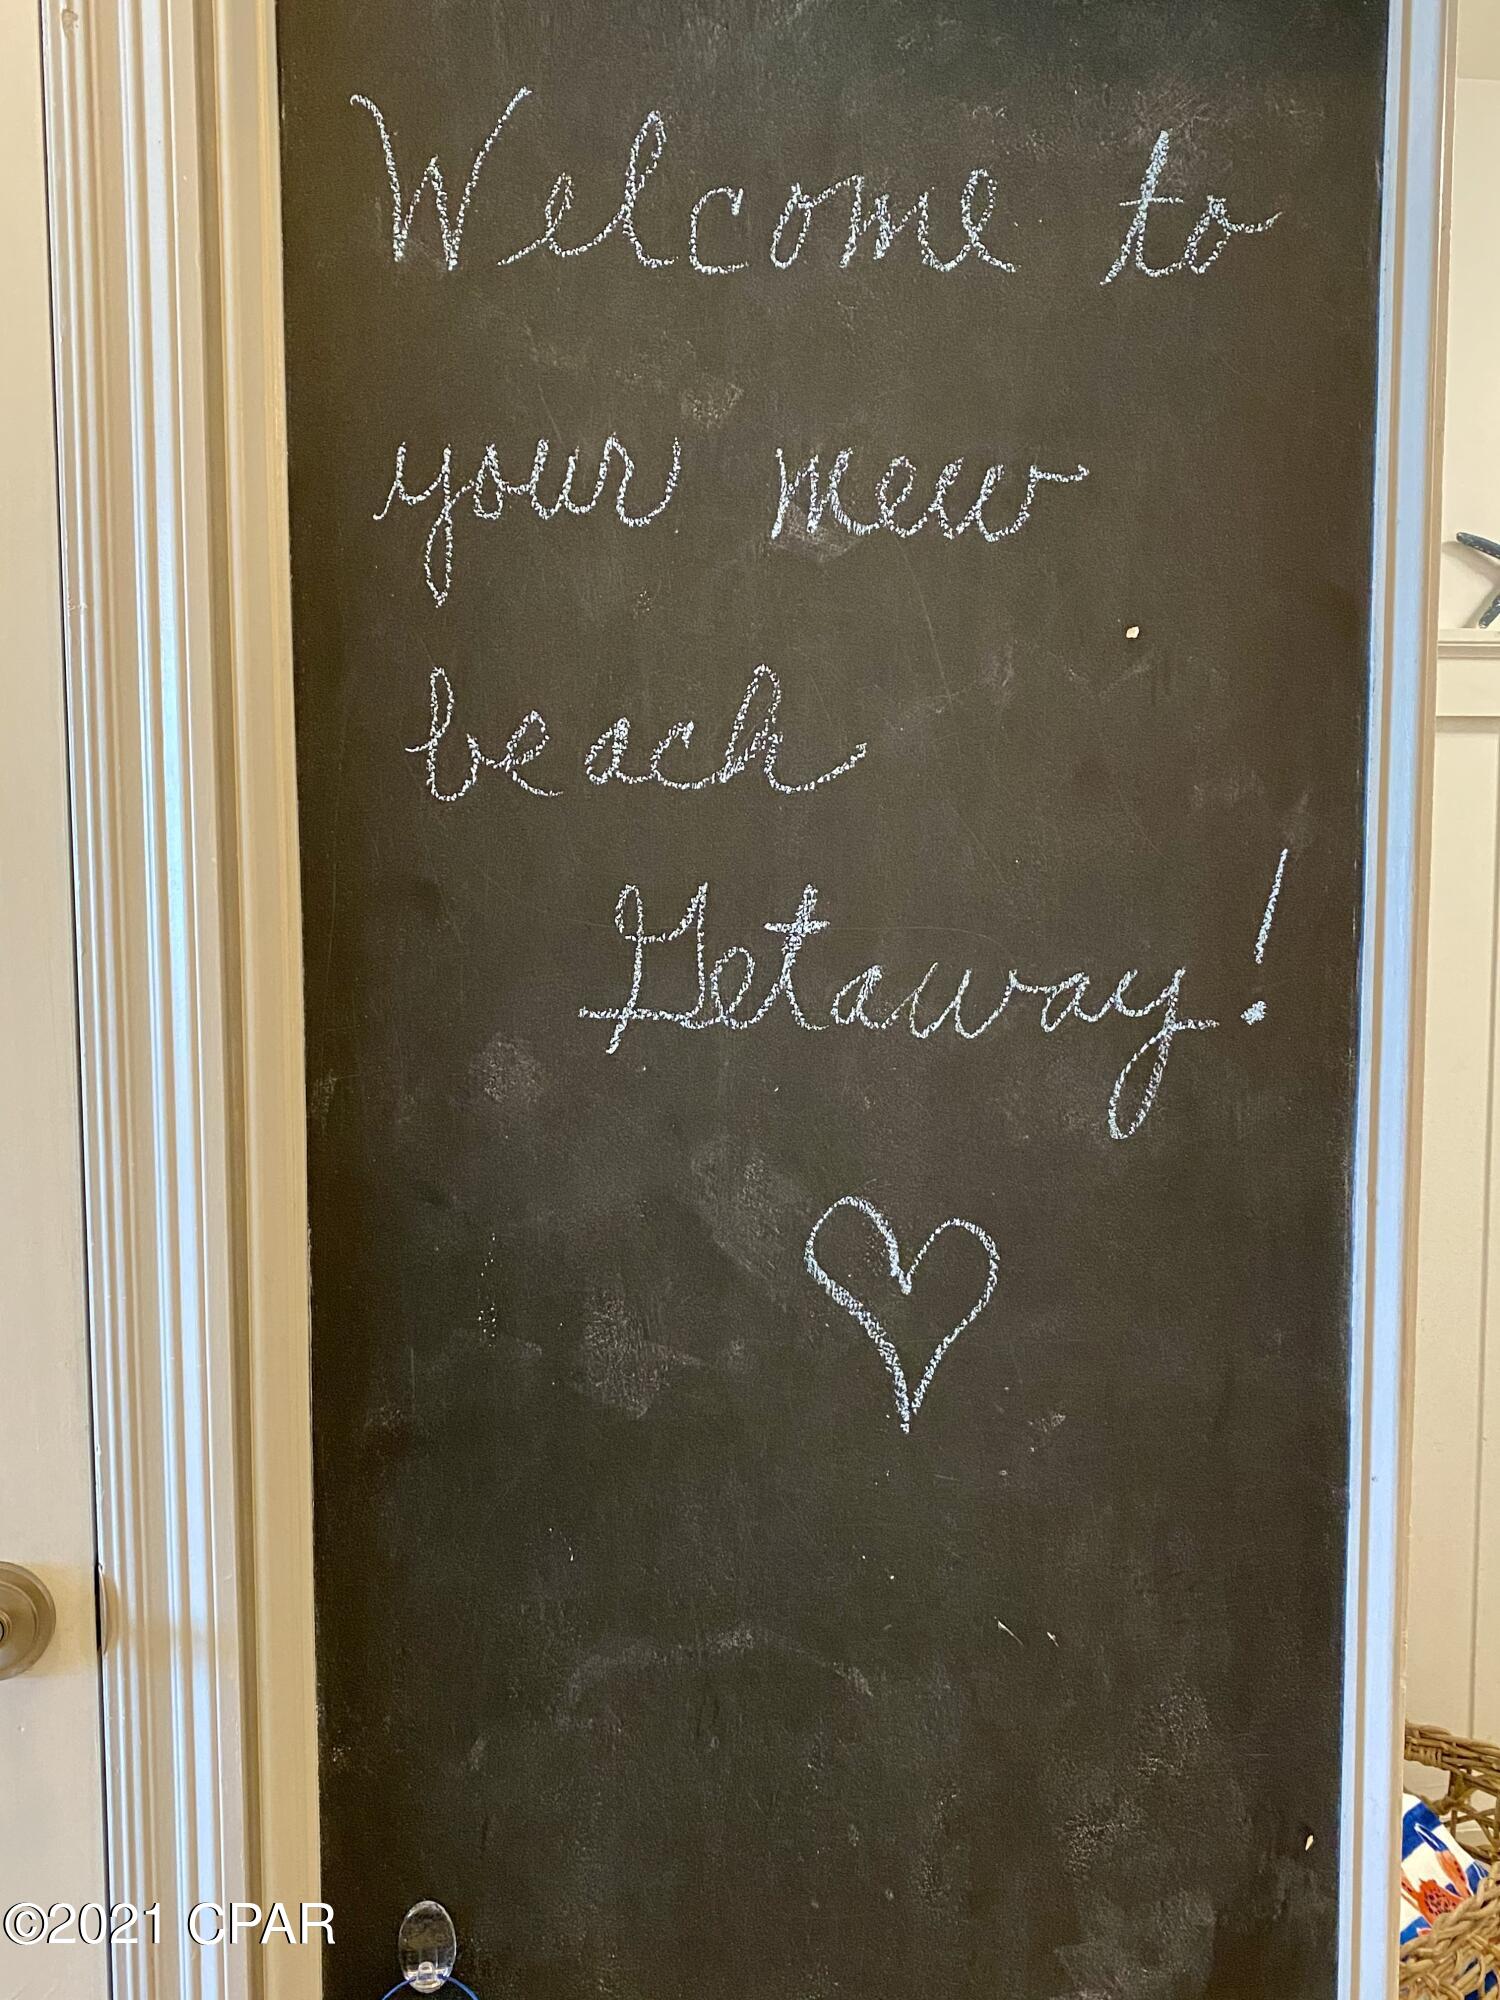 Welcome to
your new
beach
Getaway!
©2021 CPAR